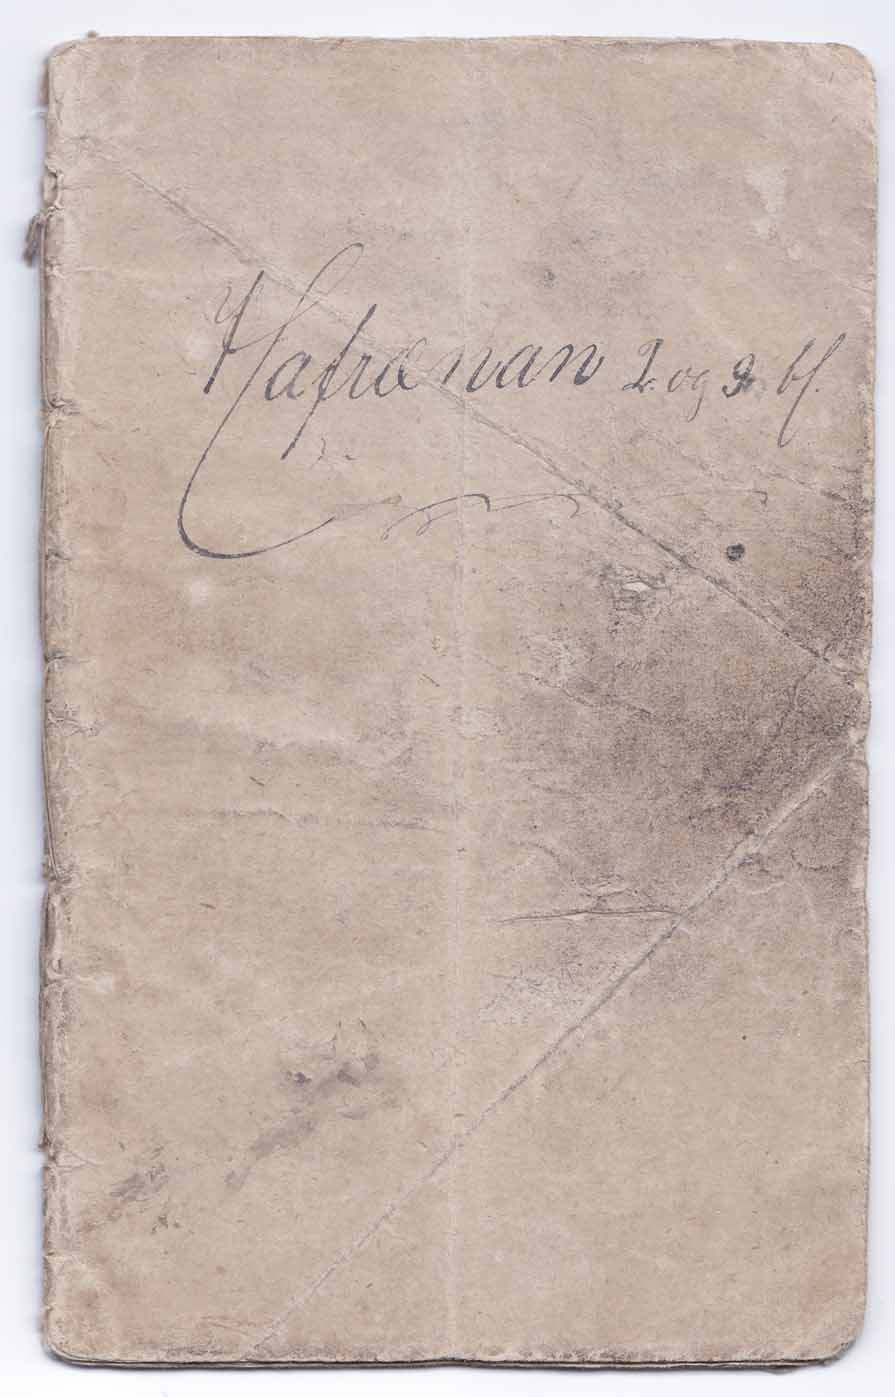 Hafrænan 2. og 3. bl.